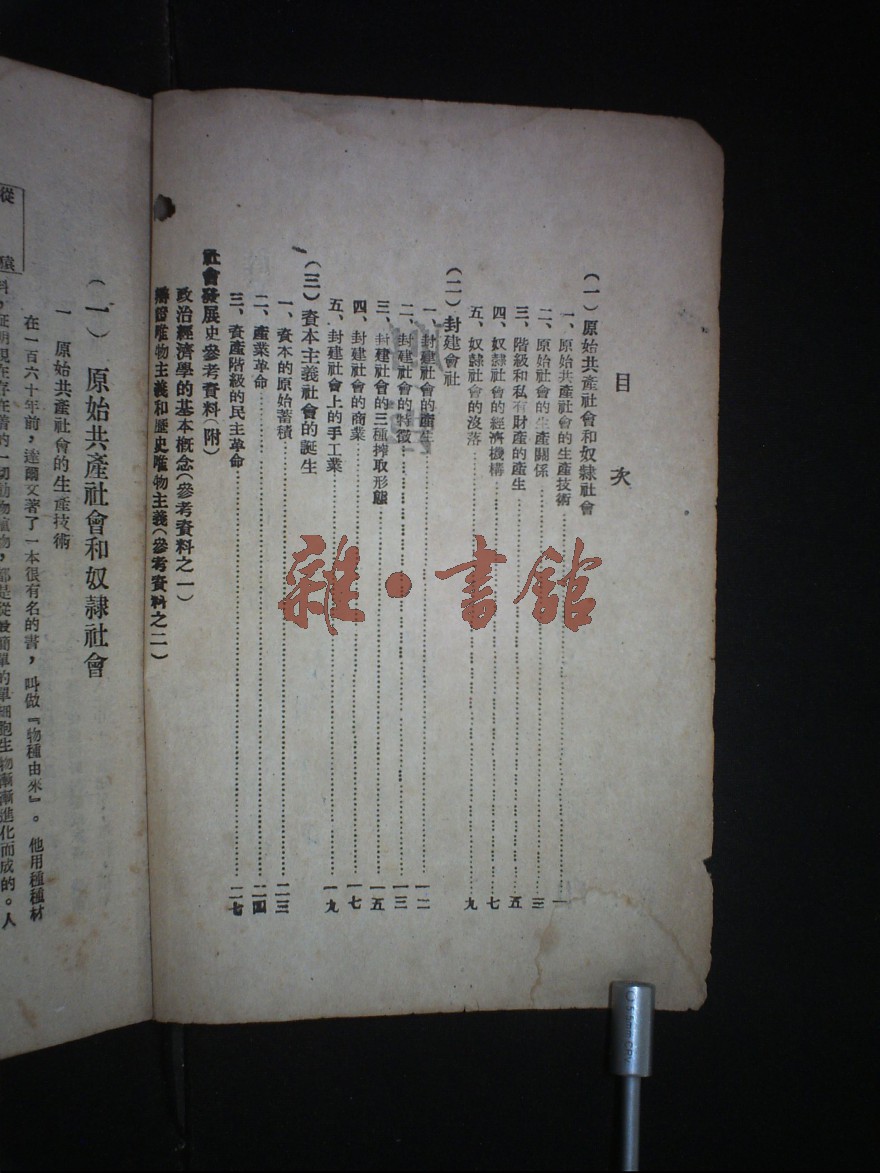 目 次
(一)原始共產社會和奴隸社會
一、原始共產社會的生產技術……一
二、原始社會的生產關係……三
三、階級和私有財產的產生……五
四、奴隸社會的經濟機構……七
五、奴隸社會的沒落……九
(二)封建會社
一、封建社會的產生……一二
二、封建社會的特徵……一三
三、封建社會的三種搾取形態……一五
四、封建社會的商業……一七
五、封建社會上的手工業……一九
(三)資本主義社會的誕生
一、資本的原始蓄積……二三
二、產業革命……二四
三、資產階級的民主革命……二七
社會發展史參考資料(附)
政治經濟學的基本概念(參考資料之一)
辯證唯物主義和歷史唯物主義(參考資料之二)
雜·書館
(一) 原始共產社會和奴隸社會
一 原始共產社會的生產技術
在一百六十年前,達爾文著了一本很有名的書,叫做『物種由來』。他用種種材
料,証明現在存在着的一切動物植物,都是從最簡單的單細胞生物漸漸進化而成的。人
從 猿